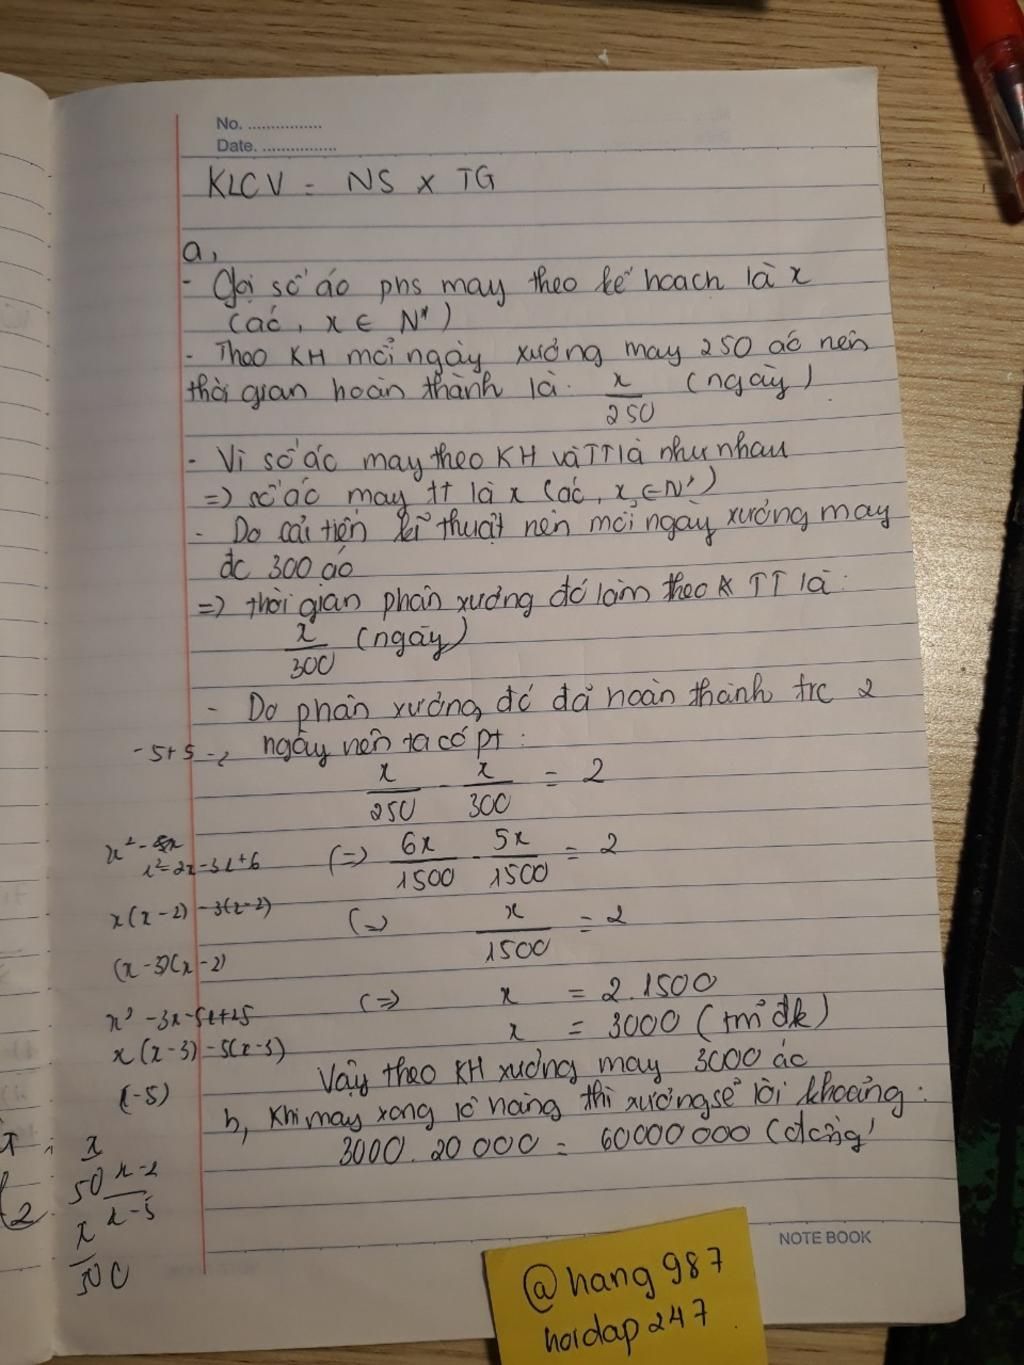 No. ................
Date. ................
KLCV = NS x TG
a,
- Gọi số áo phs may theo kế hoạch là x
(áo, x ∈ N*)
- Theo KH mỗi ngày xưởng may 250 áo nên
thời gian hoàn thành là: x/250 (ngày)
- Vì số áo may theo KH và TT là như nhau
=) số áo may tt là x (áo, x ∈ N*)
- Do cải tiến kĩ thuật nên mỗi ngày xưởng may
đc 300 áo
=) thời gian phân xưởng đó làm theo TT là:
x/300 (ngày)
- Do phân xưởng đó đã hoàn thành trc 2
-5+5
ngày nên ta có pt:
x/250 - x/300 = 2
(=) 6x/1500 - 5x/1500 = 2
(=) x/1500 = 2
(=) x = 2.1500
x = 3000 (tm đk)
Vậy theo KH xưởng may 3000 áo
b, Khi may xong lô hàng thì xưởng sẽ lời khoảng:
3000.20 000 = 60000 000 (đồng)
x²-2x-3x+6
x(x-2) -3(x-2)
(x-3)(x-2)
x² -3x-5x+15
x(x-3) -5(x-3)
(-5)
x
50
x-2
x-5
x
300
NOTE BOOK
@hang987
hoidap247